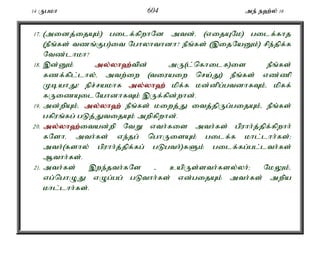 14 ருபமா 604 அந் நஹ்ல் 16
17. (அனைத்தையும்) படைக்கிறானே அவன், (எதையுமே) படைக்காத
(நீங்கள் வணங்குப)வை போலாவானா? நீங்கள் (இதையேனும்) சிந்திக்க
வேண்டாமா?
18. இன்னும் அல்லாஹ்வின் அரு(ட்கொடைக)ளை நீங்கள்
கணக்கிட்டால், அவற்றை (வரையறை செய்து) நீங்கள் எண்ணி
முடியாது! நிச்சயமாக அல்லாஹ் மிக்க மன்னிப்பவனாகவும், மிகக்
கருணையுடையோனாகவும் இருக்கின்றான்.
19. அன்றியும், அல்லாஹ் நீங்கள் மறைத்து வைத்திருப்பதையும், நீங்கள்
பகிரங்கப் படுத்துவதையும் அறிகிறான்.
20. அல்லாஹ்வையன்றி வேறு எவர்களை அவர்கள் பிரார்த்திக்கிறார்
களோ, அவர்கள் எந்தப் பொருளையும் படைக்க மாட்டார்கள்;
அவர்(களால் பிரார்த்திக்கப் படுபவர்)களும் படைக்கப்பட்டவர்கள்
ஆவார்கள்.
21. அவர்கள் இறந்தவர்களே - உயிருள்ளவர்களல்லர்; மேலும்,
எப்பொழுது எழுப்பப் படுவார்கள் என்பதையும் அவர்கள் அறிய
மாட்டார்கள்.